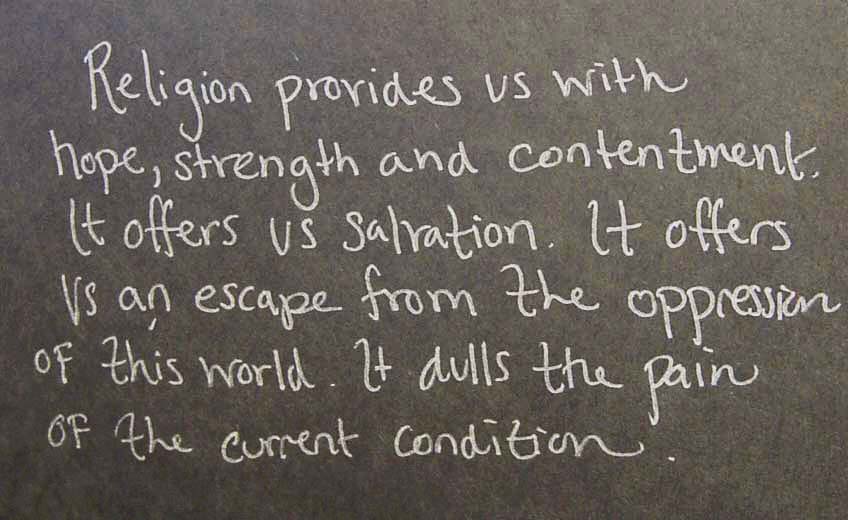 Religion provides us with
hope, strength and contentment.
It offers us salvation. It offers
us an escape from the oppression
of this world. It dulls the pain
of the current condition.